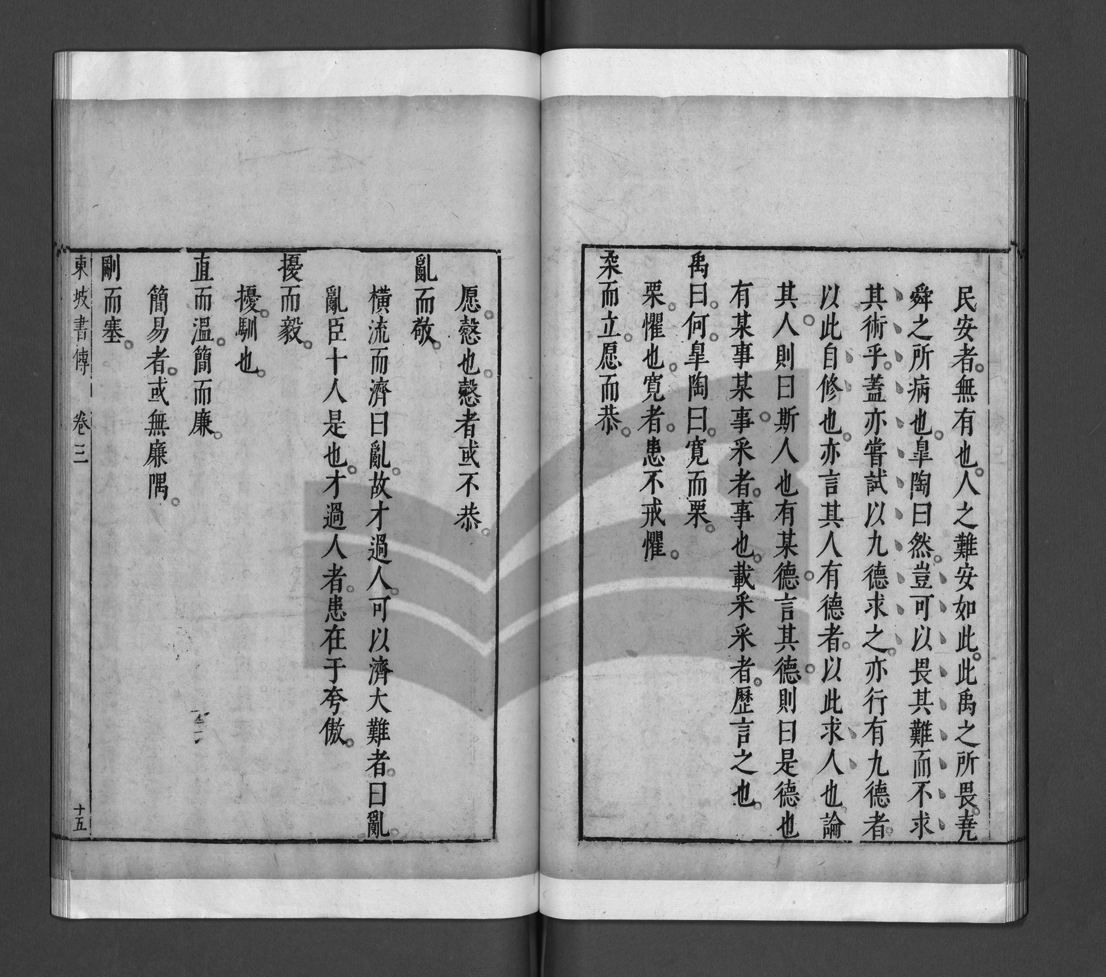 民安者。無有也。人之難安如此。此禹之所畏。堯
舜之所病也。臯陶曰然。豈可以畏其難而不求
其術乎。蓋亦嘗試以九德求之。亦行有九德者。
以此自修也。亦言其人有德者。以此求人也。論
其人。則曰斯人也有某德。言其德。則曰是德也
有某事某事。采者。事也。載采采者。歷言之也。
禹曰。何。臯陶曰。寬而栗。
栗。懼也。寬者。患不戒懼。
柔而立。愿而恭。
愿。慤也。慤者或不恭。
亂而敬。
橫流而濟曰亂。故才過人。可以濟大難者。曰亂。
亂臣十人是也。才過人者。患在于夸傲。
擾而毅。
擾。馴也。
直而溫。簡而廉。
簡易者。或無廉隅。
剛而塞。
東坡書傳 卷三 十五